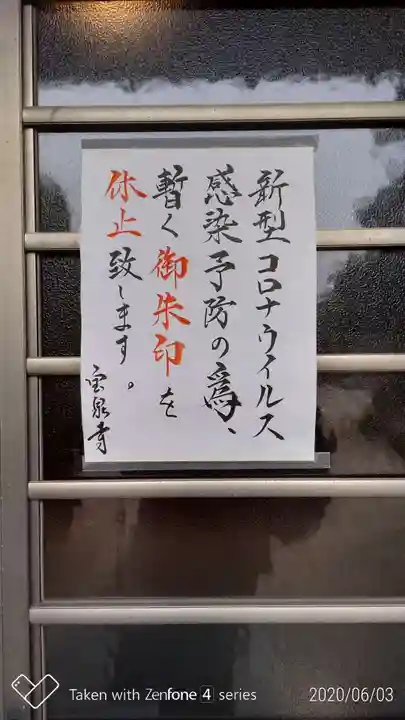 新型コロナウイルス
感染予防の為、
暫く御朱印を
休止致します。
宝泉寺
Taken with Zenfone 4 series
2020/06/03